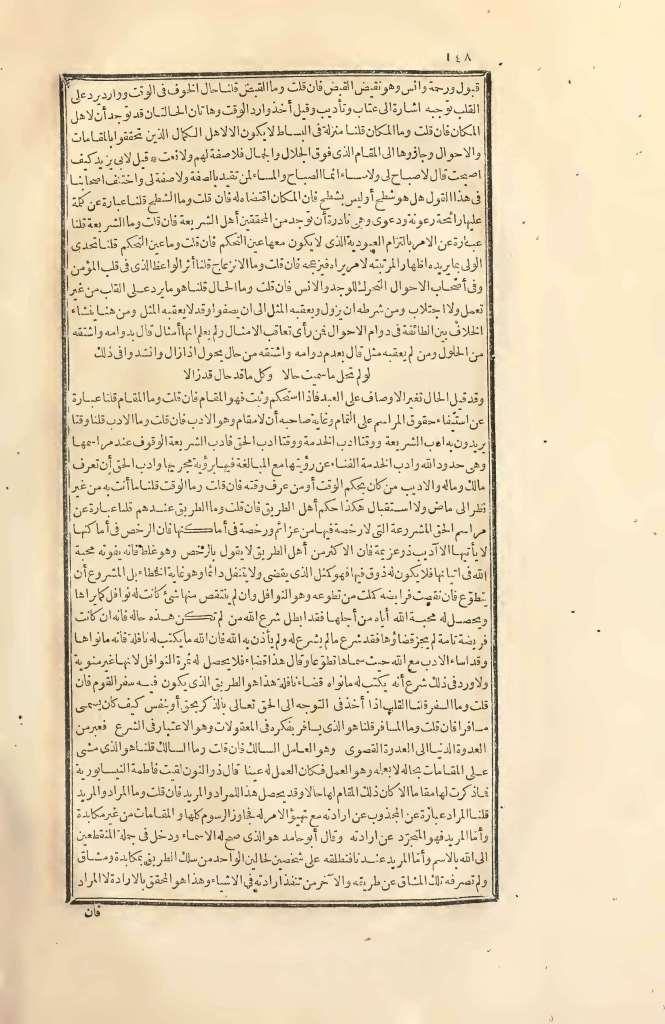 ١٤٨
قبول ورحمة وانس وهو نقيض القبض فان قلت وما القبض قلنا حال الخوف فى الوقت ووارد يرد على
القلب توجبه اشارة الى عتاب وتأديب وقيل أخذ وارد الوقت وهاتان الحالتان قد توجد أن لاهل
المكان فان قلت وما المكان قلنا منزلة فى البساط لا يكون الا لاهل الكمال الذين تحققوا بالمقامات
والاحوال وجازوها الى المقام الذى فوق الجلال والجمال فلا صفة لهم ولا نعت * قيل لابى يزيد كيف
اصبحت قال لا صباح لى ولا مساء انما الصباح والمساء لمن تقيد بالصفة ولا صفة لى واختلف اصحابنا
فى هذا القول هل هو شطح أو ليس بشطح فان المكان اقتضاه له فان قلت وما الشطح قلنا عبارة عن كلمة
عليها رائحة رعونة ودعوى وهى نادرة أن توجد من المحققين أهل الشريعة فان قلت وما الشريعة قلنا
عبارة عن الامر بالتزام العبودية الذى لا يكون معها عين التحكم فان قلت وما عين التحكم قلنا تحدى
الولى بما يريده اظهار المرتبته لامر يراه فيزعجه فان قلت وما الانزعاج قلنا أثر الواعظ الذى فى قلب المؤمن
وفى أصحاب الاحوال التحرك للوجد والانس فان قلت وما الحال قلنا هو ما يرد على القلب من غير
تعمل ولا اجتلاب ومن شرطه ان يزول ويعقبه المثل الى ان يصفو وقد لا يعقبه المثل ومن هنا ينشاء
الخلاف بين الطائفة فى دوام الاحوال فمن رأى تعاقب الامثال ولم يعلم انها أمثال قال بدوامه واشتقه
من الحلول ومن لم يعقبه مثل قال بعدم دوامه واشتقه من حال يحول اذا زال وانشدوا فى ذلك
لو لم تحل ما سميت حالا وكل ما قد حال قد زالا
وقد قيل الحال تغير الاوصاف على العبد فاذا استحكم وثبت فهو المقام فان قلت وما المقام قلنا عبارة
عن استيفاء حقوق المراسم على التمام وغاية صاحبه أن لا مقام وهو الادب فان قلت وما الادب قلنا وقتا
يريدون به ادب الشريعة ووقتا ادب الخدمة ووقتا ادب الحق فادب الشريعة الوقوف عند مراسمها
وهى حدود الله وادب الخدمة الفناء عن رؤيتها مع المبالغة فيها برؤية مجريها وادب الحق أن تعرف
مالك وماله والاديب من كان بحكم الوقت أو من عرف وقته فان قلت وما الوقت قلنا ما أنت به من غير
نظر الى ماض ولا استقبال هكذا حكم أهل الطريق فان قلت وما الطريق عندهم قلنا عبارة عن
مراسم الحق المشروعة التى لا رخصة فيها من عزائم ورخصة فى أماكنها فان الرخص فى أماكنها
لا يأتيها الا أديب ذو عزيمة فان الاكثر من أهل الطريق لا يقول بالرخص وهو غلط فانه يفوته محبة
الله فى اتيانها فلا يكون له ذوق فيها فهو كمثل الذى يقضى ولا يتنفل دائما وهو غاية الخطاء بل المشروع أن
يتطوع فان نقصت فرائضه كملت من تطوعه وهو النوافل وان لم ينتقص منها شئ كانت له نوافل كما يراها
ويحصل له محبة الله أياه من أجلها فقد ابطل شرع الله من لم تكن هذه حاله فانه ان كانت
فريضة تامة لم يجز قضاؤها فقد شرع ما لم يشرع له ولم يأذن به الله فان الله ما يكتب له نافلة فانه ما نواها
وقد اساء الادب مع الله حيث سماها تطوعا وقال هذا قضاء فلا يحصل له ثمرة النوافل لانها غير منوية
ولا ورد فى ذلك شرع أنه يكتب له ما نواه قضاء نافلة هذا هو الطريق الذى يكون فيه سفر القوم فان
قلت وما السفر قلنا القلب اذا أخذ فى التوجه الى الحق تعالى بالذكر بحق أو بنفس كيف كان يسمى
مسافرا فان قلت وما المسافر قلنا هو الذى يسافر بفكره فى المعقولات وهو الاعتبار فى الشرع فعبر من
العدوة الدنيا الى العدوة القصوى وهو العامل السالك فان قلت وما السالك قلنا هو الذى مشى
على المقامات بحاله لا بعلمه وهو العمل فكان العمل له عينا قال ذو النون لقيت فاطمة النيسابورية
فما ذكرت لها مقاما الا كان ذلك المقام لها حالا وقد يحصل هذا للمراد والمريد فان قلت وما المراد والمريد
قلنا المراد عبارة عن المجذوب عن ارادته مع تهيئ الامر له فجاوز الرسوم كلها والمقامات من غير مكابدة
وأما المريد فهو المتجرد عن ارادته وقال أبو حامد هو الذى صح له الاسماء ودخل فى جملة المنقطعين
الى الله بالاسم وأما المريد عندنا فنطلقه على شخصين لحالين الواحد من سلك الطريق بمكابدة ومشاق
ولم تصرفه تلك المشاق عن طريقه والآخر من تنفذ ارادته فى الاشياء وهذا هو المحقق بالارادة لا المراد
فان